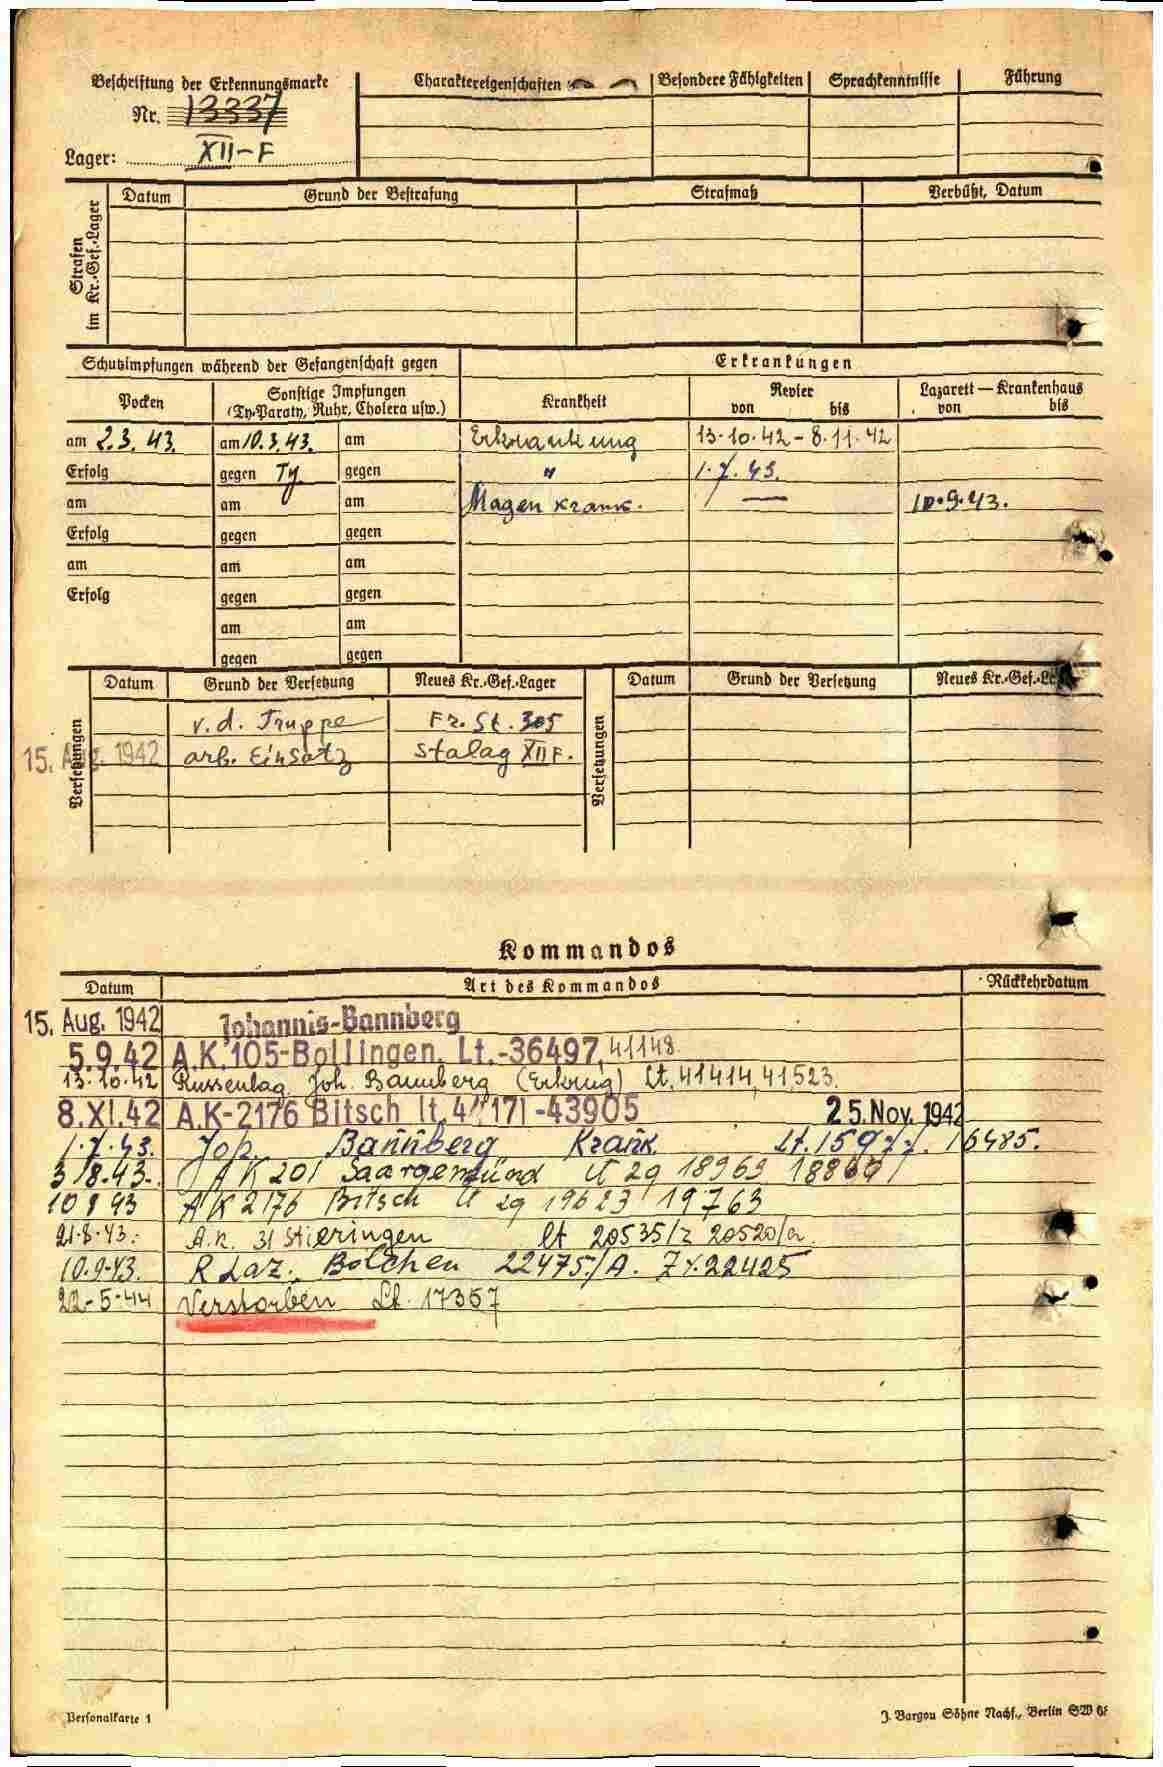 Beschriftung der Erkennungsmarke
Nr. 13337
Lager: XII-F
Charaktereigenschaften
Besondere Fähigkeiten
Sprachkenntnisse
Führung
Strafen im Kr.-Gef.-Lager
Datum
Grund der Bestrafung
Strafmaß
Verbüßt, Datum
Schutzimpfungen während der Gefangenschaft gegen
Erkrankungen
Pocken
Sonstige Impfungen
(Ty.-Paraty, Ruhr, Cholera usw.)
Krankheit
Revier
von bis
Lazarett — Krankenhaus
von bis
am 2.3.43. am 10.3.43. am Erkrankung 13.10.42 - 8.11.42
Erfolg gegen Ty. gegen " 1.7.43.
am am am Magen krank. — 10.9.43.
Erfolg gegen gegen
am am am
Erfolg gegen gegen
am am
gegen gegen
Versetzungen
Datum Grund der Versetzung Neues Kr.-Gef.-Lager
v. d. Truppe Fr. St. 305
15. Aug. 1942 arb. Einsatz Stalag XII F.
Versetzungen
Datum Grund der Versetzung Neues Kr.-Gef.
Kommandos
Datum Art des Kommandos Rückkehrdatum
15. Aug. 1942 Johannis-Bannberg
5.9.42 A.K. 105-Bollingen. Lt.-36497, 41148
13.10.42 Russenlag. Joh. Bannberg (Erkrng) Lt. 41414, 41523.
8.XI.42 A.K-2176 Bitsch lt. -43905 25. Nov. 1942
1.7.43. Joh. Bannberg Krank. Lt. 16485.
3/8.43. A K 201 Saargemünd lt 29 18969
10 8 43 A K 2176 Bitsch lt 29 19623 19763
21.8.43. A.K. 31 Stieringen lt 20535/z 20520/a.
10.9.43. R Laz. Bolchen 22475/A. 22425
22-5-44 Verstorben Lt. 17357
Personalkarte 1
J. Bargou Söhne Nachf., Berlin SW 68